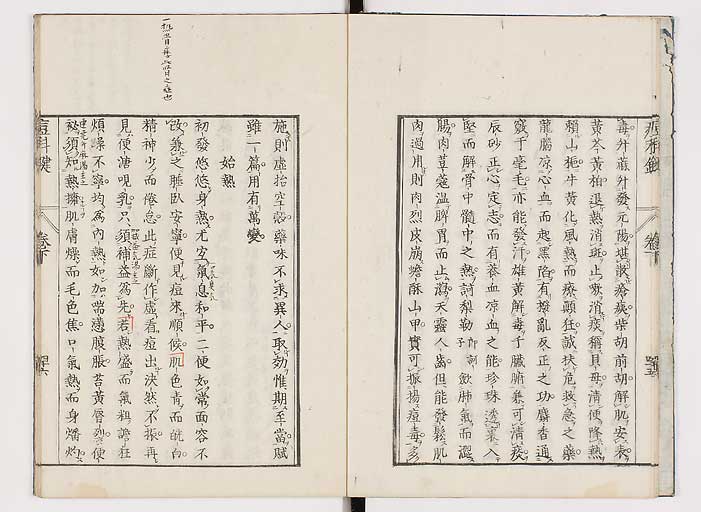 毒升蔴升發元陽堪散瘡痰柴胡前胡解肌安表
黃芩黃柏退熱消斑止嗽消痰稱貝母清便降熱
賴山梔牛黃化風熱而療顛狂誠扶危救急之藥
龍腦凉心血而起黑陷有撥亂反正之功麝香通
竅于毫毛亦能發汗雄黃解毒于臟腑兼可清痰
辰砂正心定志而有養血凉血之能珍珠透裏入
堅而解骨中髓中之熱訶梨勒飲肺氣而澀
腸肉荳蔲溫脾胃而止瀉天靈人齒但能發鬆肌
肉過用則肉烈皮崩蟾酥山甲實可振揚痘毒多
施則虛抬空殼藥味不求異人取効惟期至當賦
雖一篇用有萬變
始熱
初發悠悠身熱尤宜氣息和平二便如常面容不
改兼之睡臥安寧便見痘來順候肌色青而㿠白
精神少而倦怠此症斷作虛看痘出決然不振再
見便溏哯乳只須補益為先若熱盛而氣粗譫狂
煩躁不寧均為內熱如加喘滿腹脹苔黃唇
秘須知熱擁肌膚燥而毛色焦口氣熱而身燔灼
痘科鍵
卷下